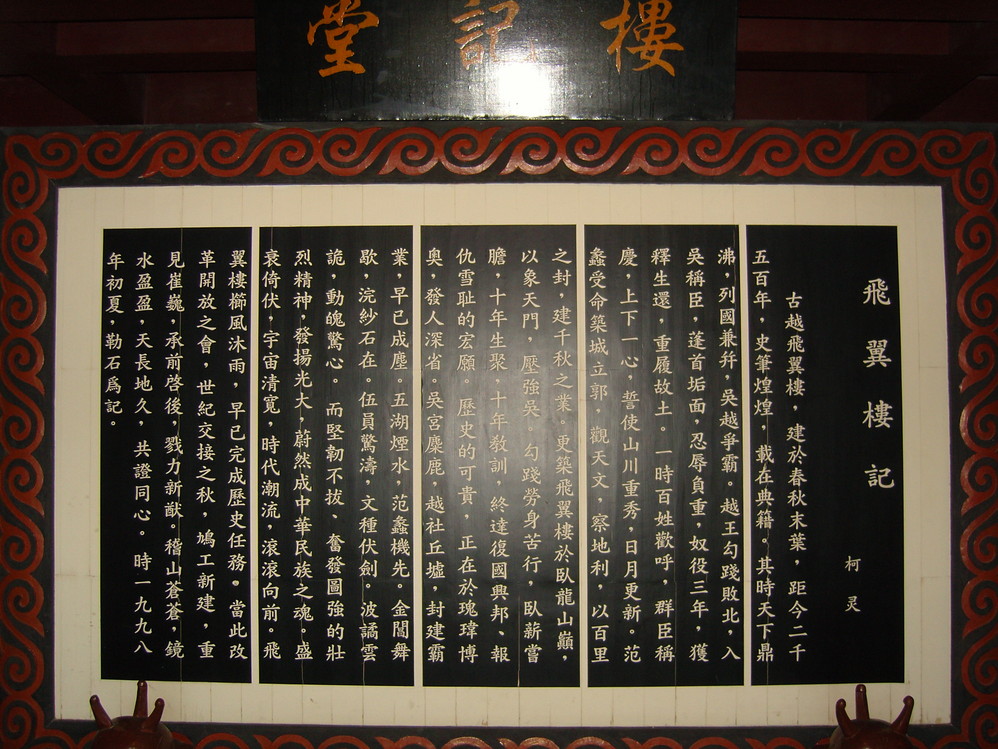 樓記堂
飛翼樓記
柯灵
古越飛翼樓，建於春秋末葉，距今二千
五百年，史筆煌煌，載在典籍。其時天下鼎
沸，列國兼并，吳越爭霸。越王勾踐敗北，入
吳稱臣，蓬首垢面，忍辱負重，奴役三年，獲
釋生還，重履故土。一時百姓歡呼，群臣稱
慶，上下一心，誓使山川重秀，日月更新。范
蠡受命築城立郭，觀天文，察地利，以百里
之封，建千秋之業。更築飛翼樓於臥龍山巔，
以象天門，壓強吳。勾踐勞身苦行，臥薪嘗
膽，十年生聚，十年教訓，終達復國興邦、報
仇雪耻的宏願。歷史的可貴，正在於瑰瑋博
奧，發人深省。吳宮麋鹿，越社丘墟，封建霸
業，早已成塵。五湖煙水，范蠡機先。金閶舞
歇，浣紗石在。伍員驚濤，文種伏劍。波譎雲
詭，動魄驚心。而堅韌不拔，奮發圖強的壯
烈精神，發揚光大，蔚然成中華民族之魂。盛
衰倚伏，宇宙清寬，時代潮流，滾滾向前。飛
翼樓櫛風沐雨，早已完成歷史任務。當此改
革開放之會，世紀交接之秋，鳩工新建，重
見崔巍，承前啓後，戮力新猷。稽山蒼蒼，鏡
水盈盈，天長地久，共證同心。時一九九八
年初夏，勒石爲記。